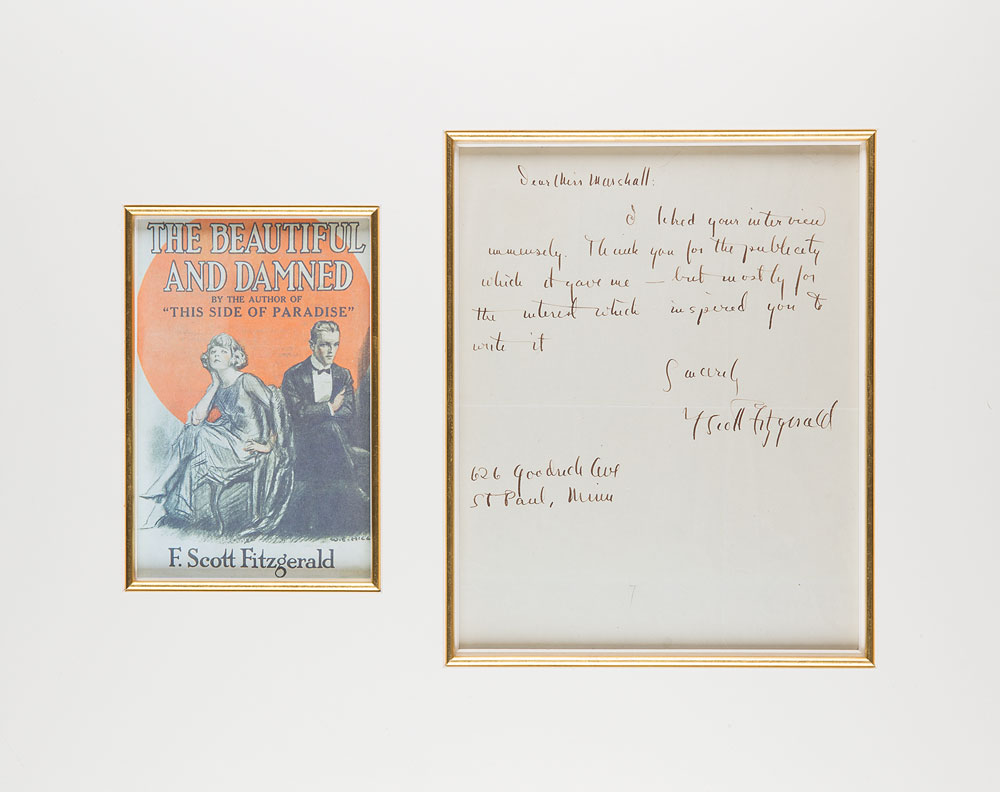 THE BEAUTIFUL
AND DAMNED
BY THE AUTHOR OF
"THIS SIDE OF PARADISE"
W.E. HILL
F. Scott Fitzgerald
Dear Miss Marshall:
I liked your interview
immensely. Thank you for the publicity
which it gave me — but mostly for
the interest which inspired you to
write it
Sincerely
F Scott Fitzgerald
626 Goodrich Ave
St Paul, Minn
7